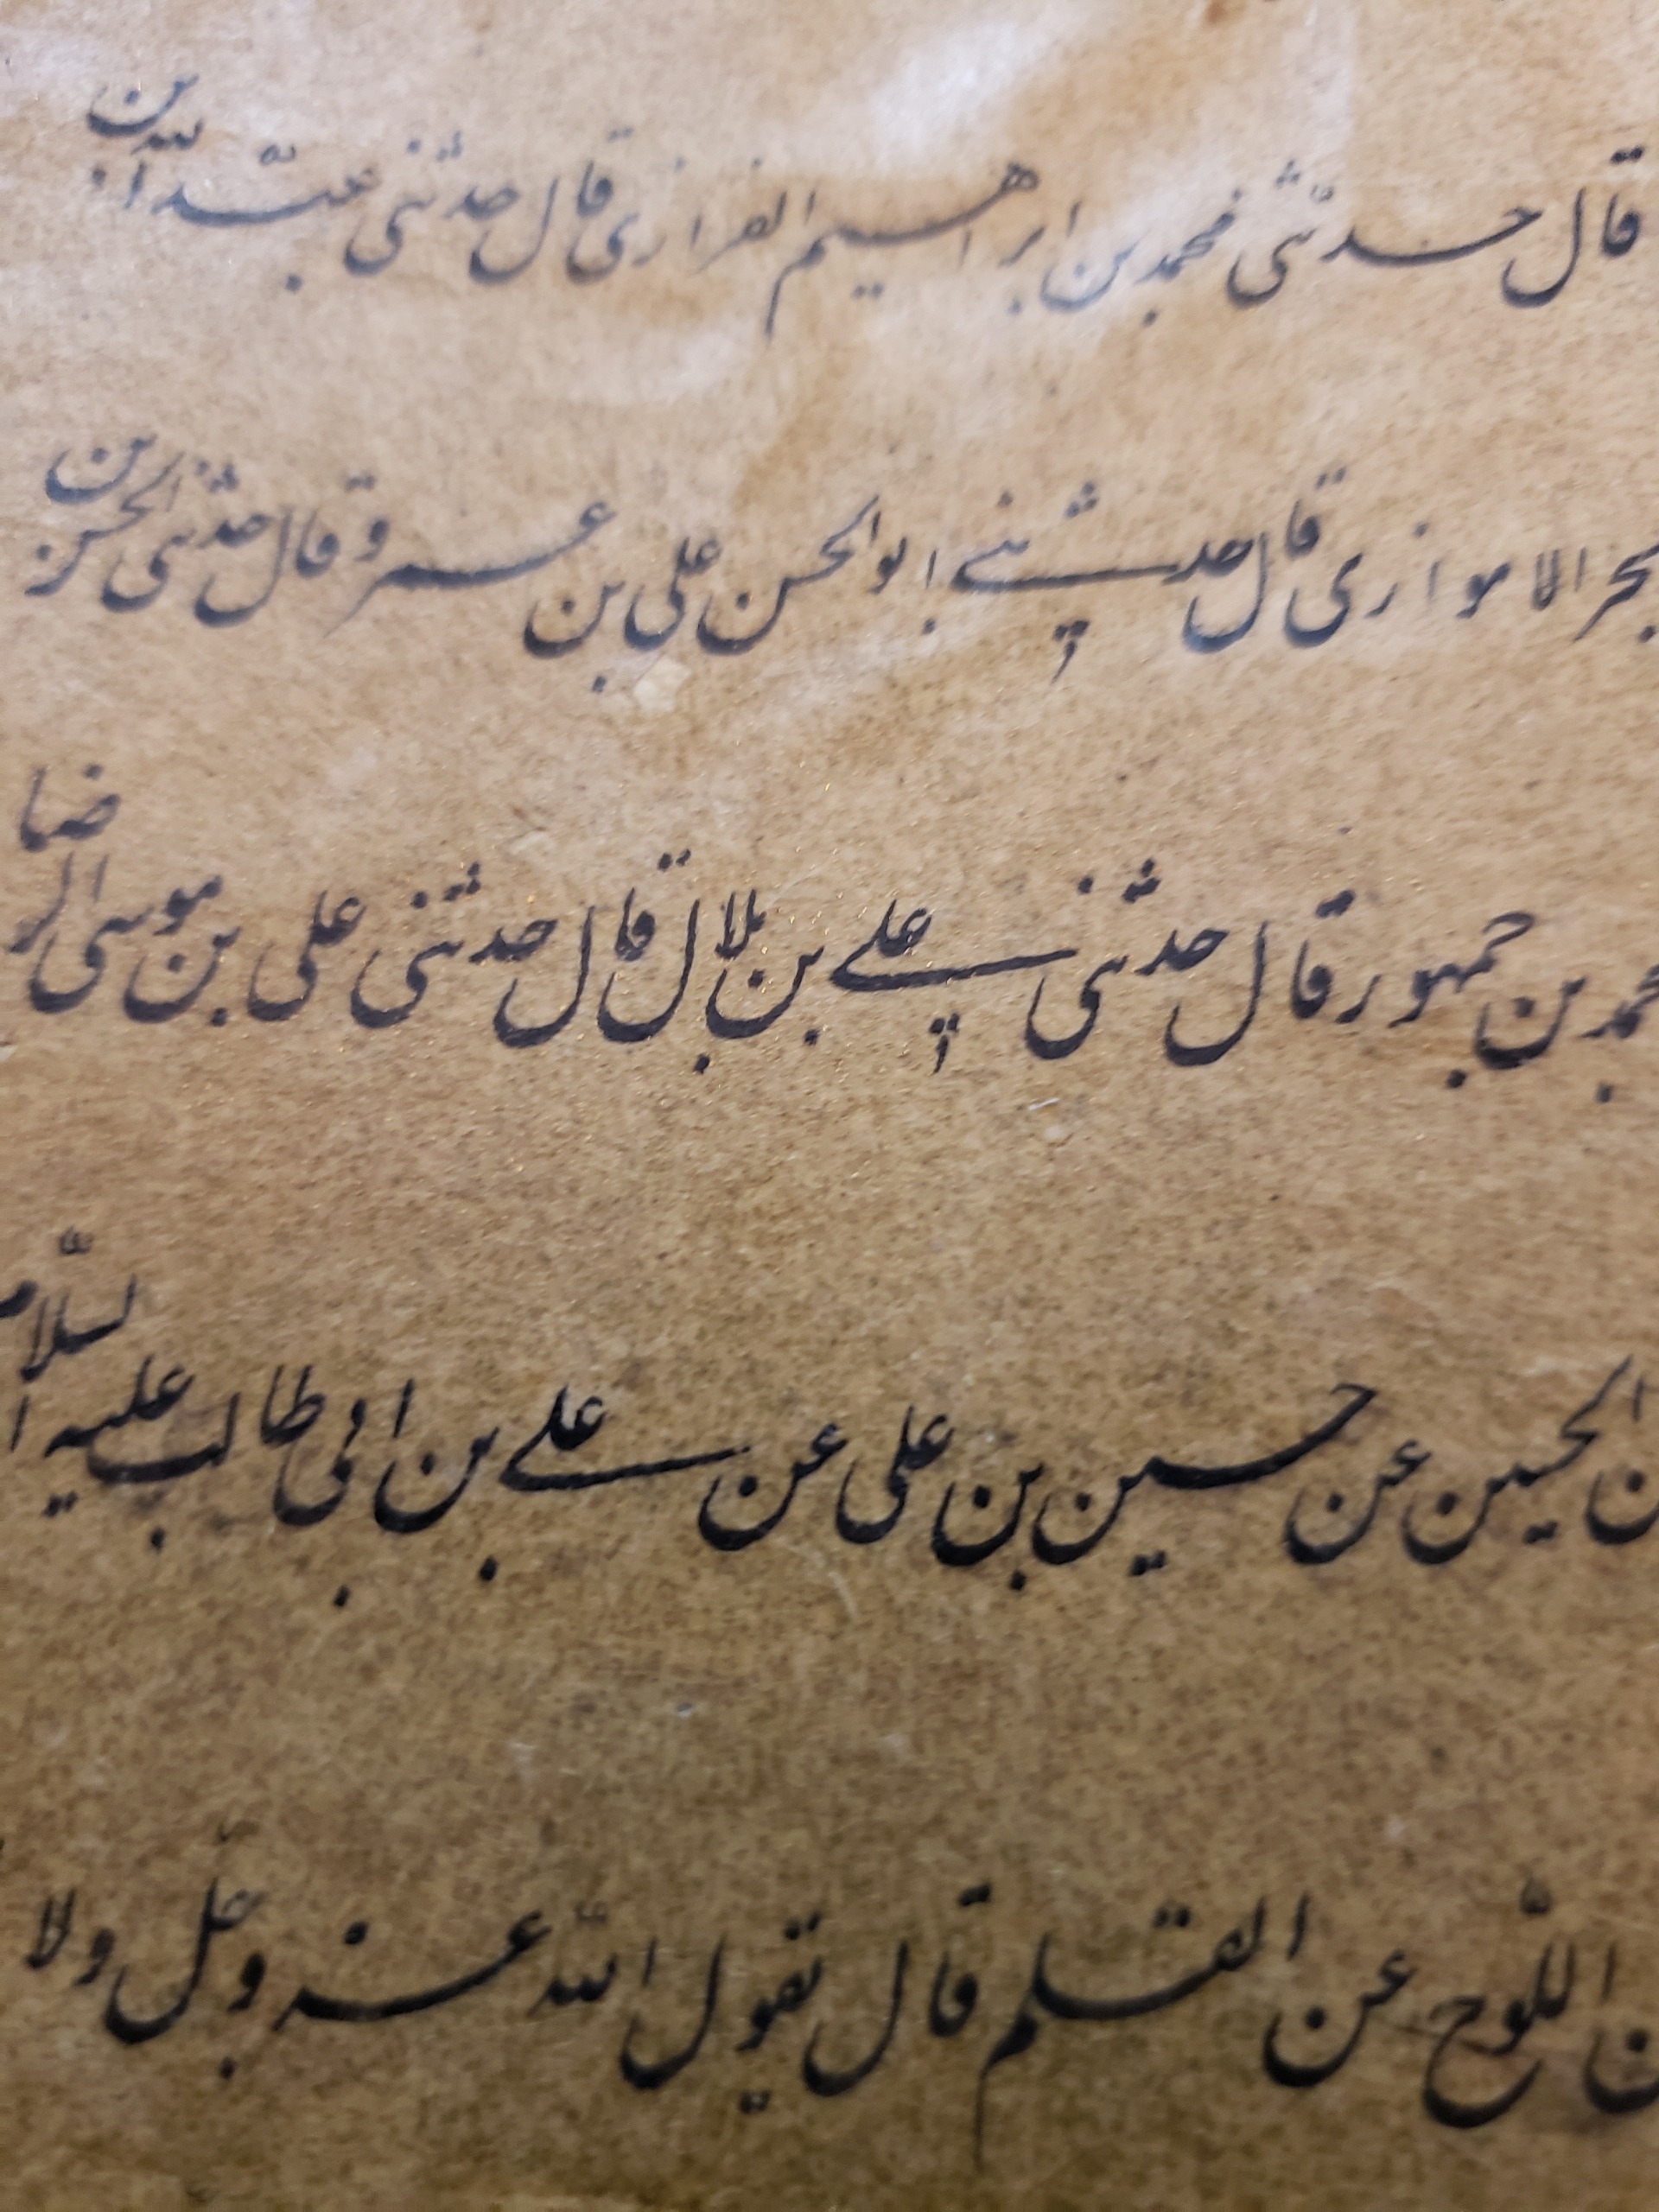 قال حدثنی محمد بن ابراهیم الفزازی قال حدثنی عبدالله بن
بحر الاهوازی قال حدثنی ابوالحسن علی بن عمرو قال حدثنی الحسن بن
محمد بن جمهور قال حدثنی علی بن بلال قال حدثنی علی بن موسی الرضا
الحسین عن حسین بن علی عن علی بن ابی طالب علیه السلام
اللّوح عن القلم قال یقول الله عز وجل ولا